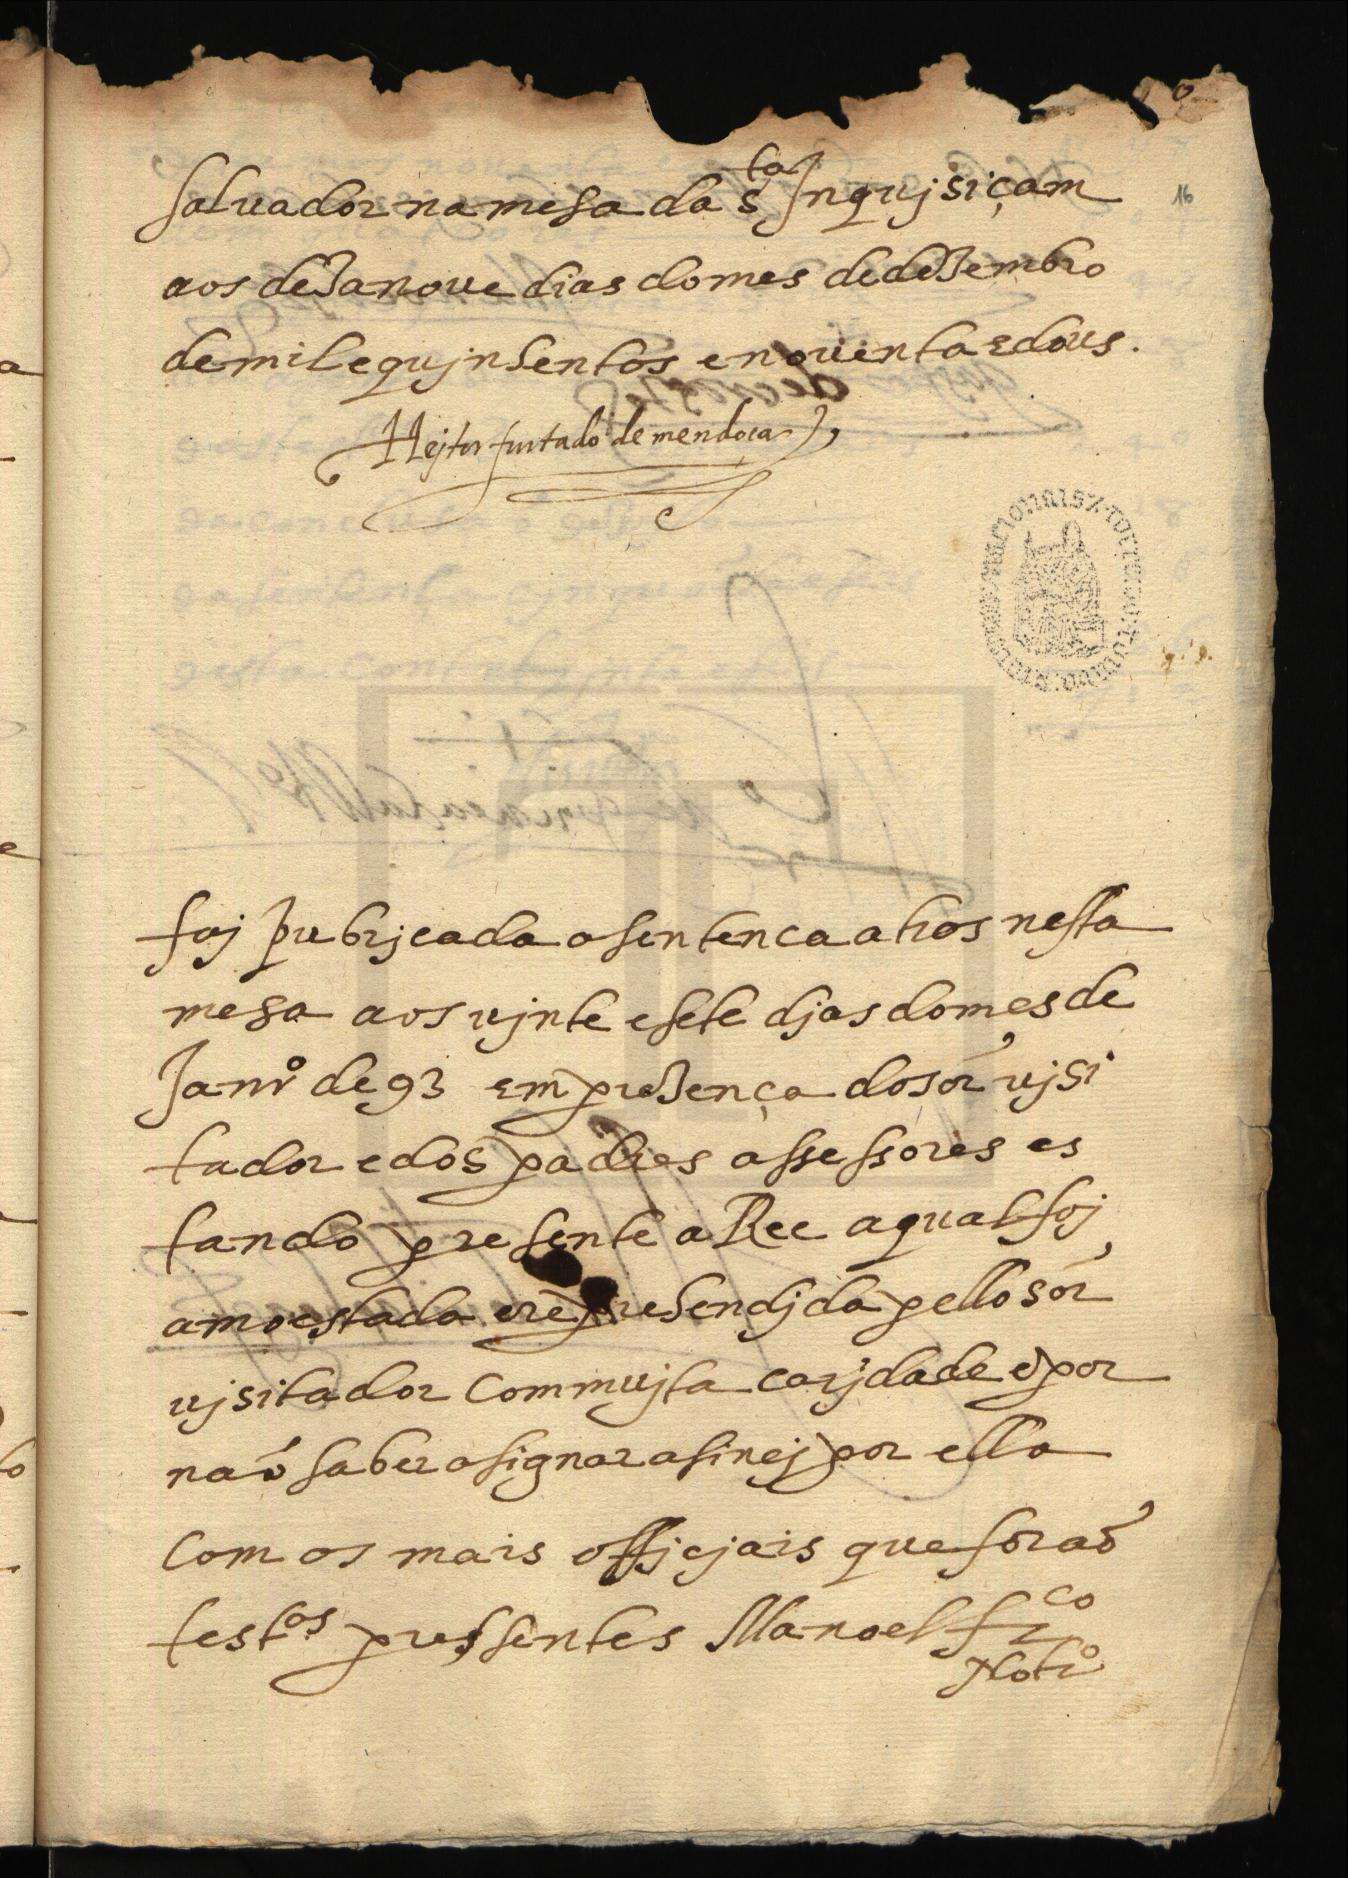 16
saluador na mesa da s.ta Inqujsiçam
aos deZanoue dias do mes de deZembro
de mil e qujnhentos e nouenta e dous.
Hejtor furtado de mendoca
foj pubrjcada a sentenca atras nesta
mesa aos vjnte e sete djas do mes de
Janr.o de 93 em preZença do sor vjsi
tador e dos padres assessores es
tando presente a Ree a qual foj
amoestada e reprehendjda pello sor
vjsitador com mujta carjdade e por
não saber asignar asinej por ella
com os mais officjais que forão
test.as pressentes Manoel fr.co
Not.ro